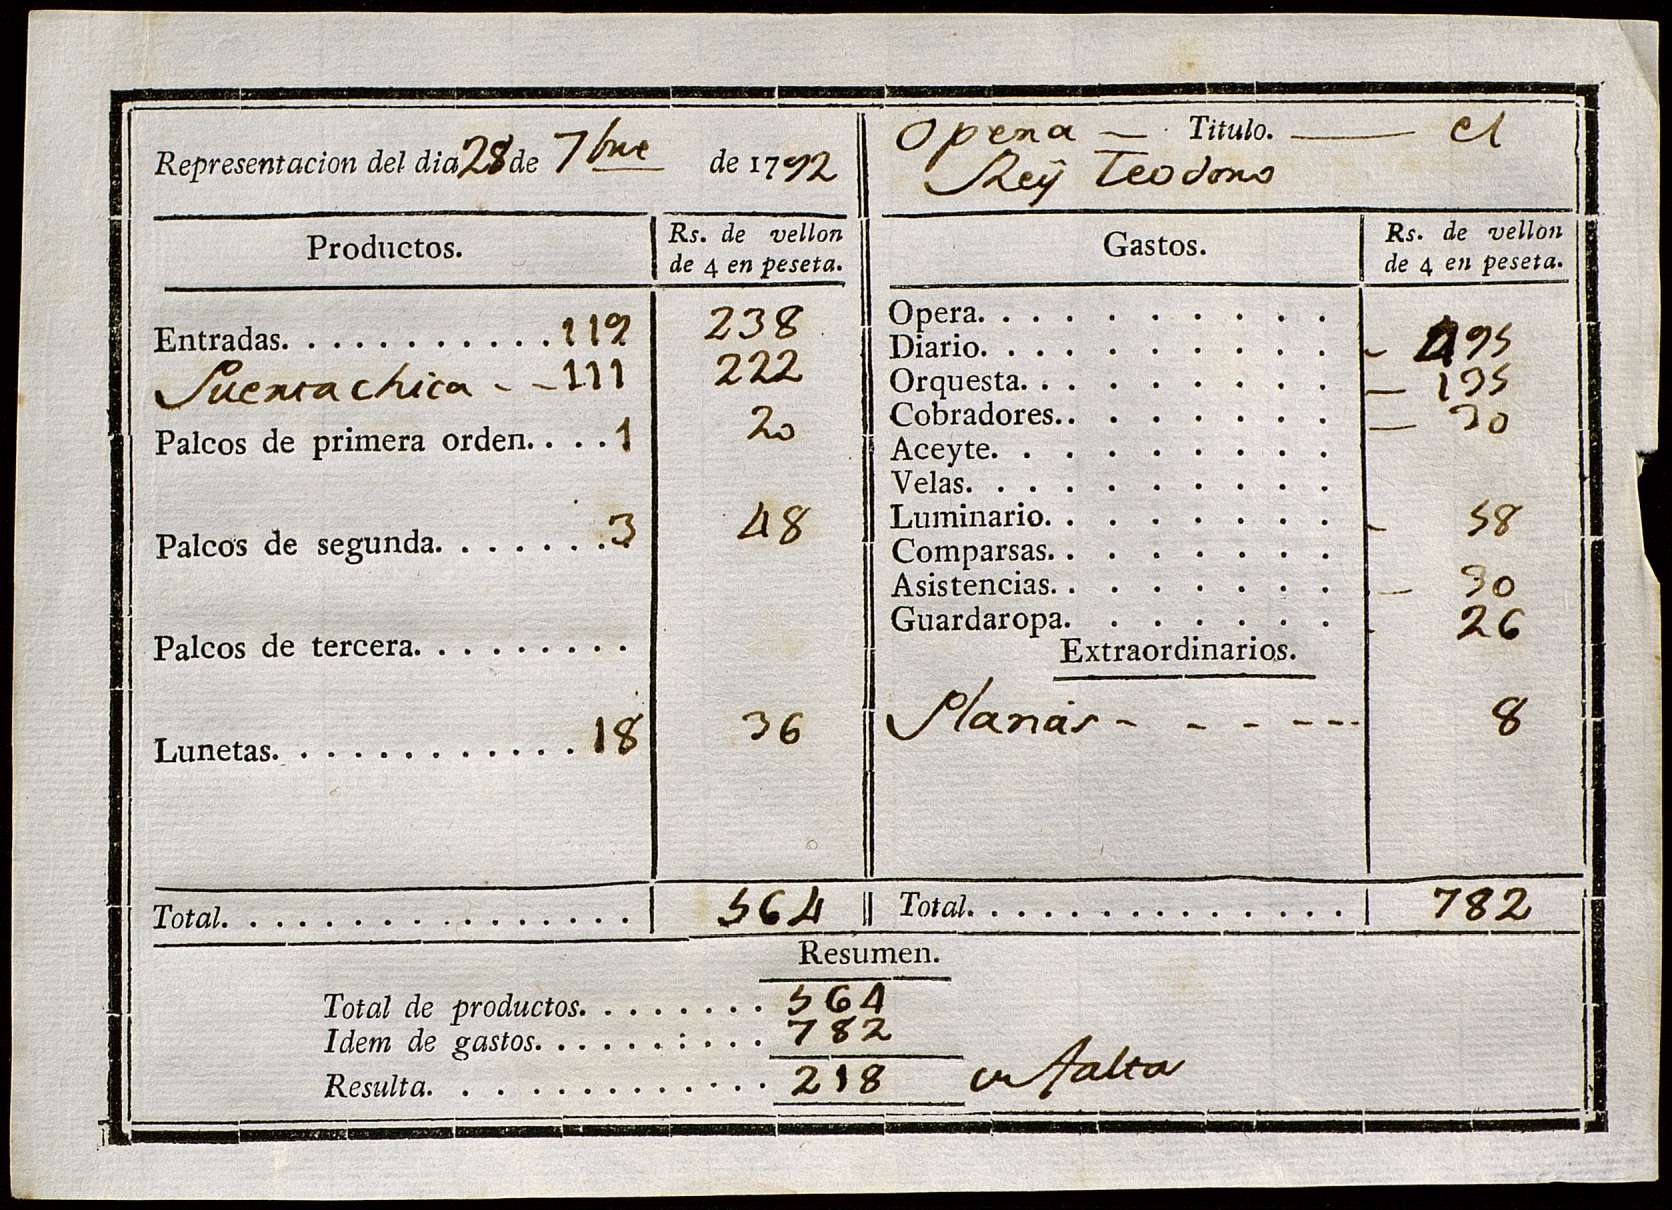 Representacion del dia 28 de 7bre de 1792
Opera — Titulo. — El
Rey Teodoro
Productos. Rs. de vellon de 4 en peseta.
Entradas. . . . . . . . . . . 119 238
Puerta chica - - 111 222
Palcos de primera orden. . . . 1 20
Palcos de segunda. . . . . . . 3 48
Palcos de tercera. . . . . . . . .
Lunetas. . . . . . . . . . . . 18 36
Total. . . . . . . . . . . . . . . . 564
Gastos. Rs. de vellon de 4 en peseta.
Opera. . . . . . . . . .
Diario. . . . . . . . . . 495
Orquesta. . . . . . . . . 135
Cobradores. . . . . . . . 30
Aceyte. . . . . . . . .
Velas. . . . . . . . . .
Luminario. . . . . . . . 58
Comparsas. . . . . . . .
Asistencias. . . . . . . . 30
Guardaropa. . . . . . . 26
Extraordinarios.
Planas - - - - - - - 8
Total. . . . . . . . . . . . . . 782
Resumen.
Total de productos. . . . . . . . 564
Idem de gastos. . . . . . : . . . 782
Resulta. . . . . . . . . . . 218 en falta